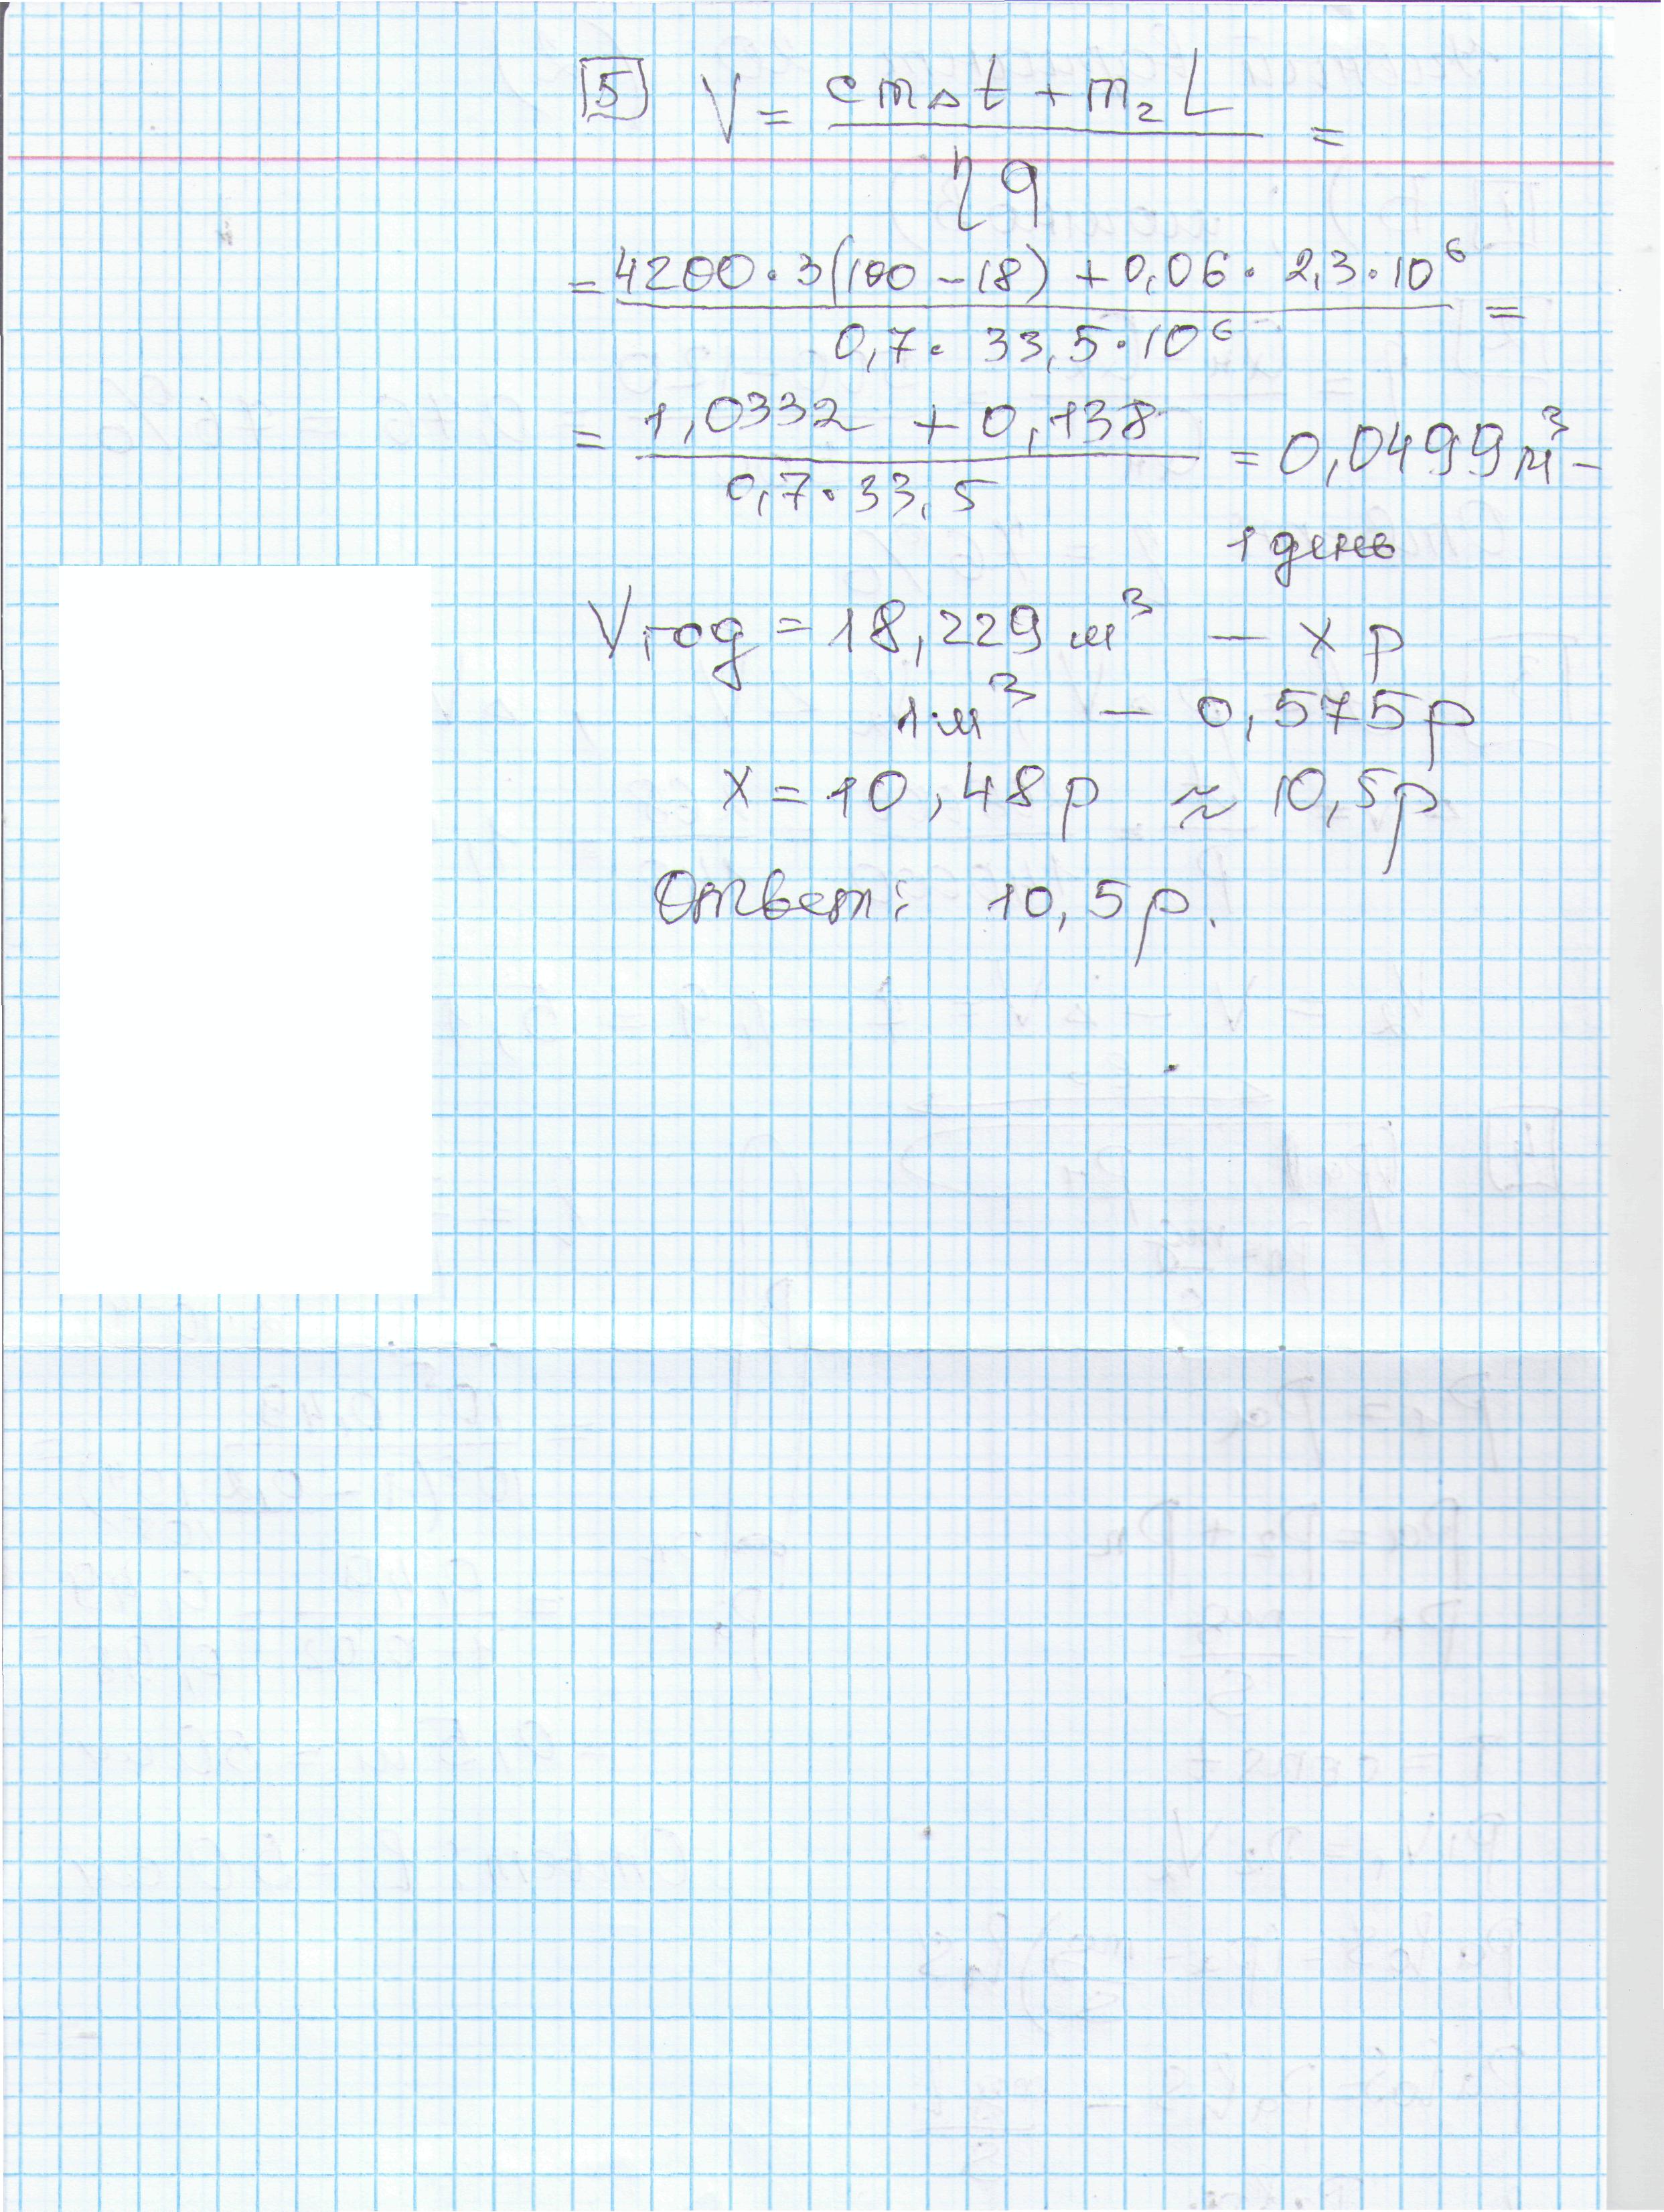 5 V = (cmΔt + m₂L) / (ηq) =
= (4200 · 3(100 - 18) + 0,06 · 2,3 · 10⁶) / (0,7 · 33,5 · 10⁶) =
= (1,0332 + 0,138) / (0,7 · 33,5) = 0,0499 м³ -
1 день
Vгод = 18,229 м³ - x р
1 м³ - 0,575 р
x = 10,48 р ≈ 10,5 р
Ответ: 10,5 р.